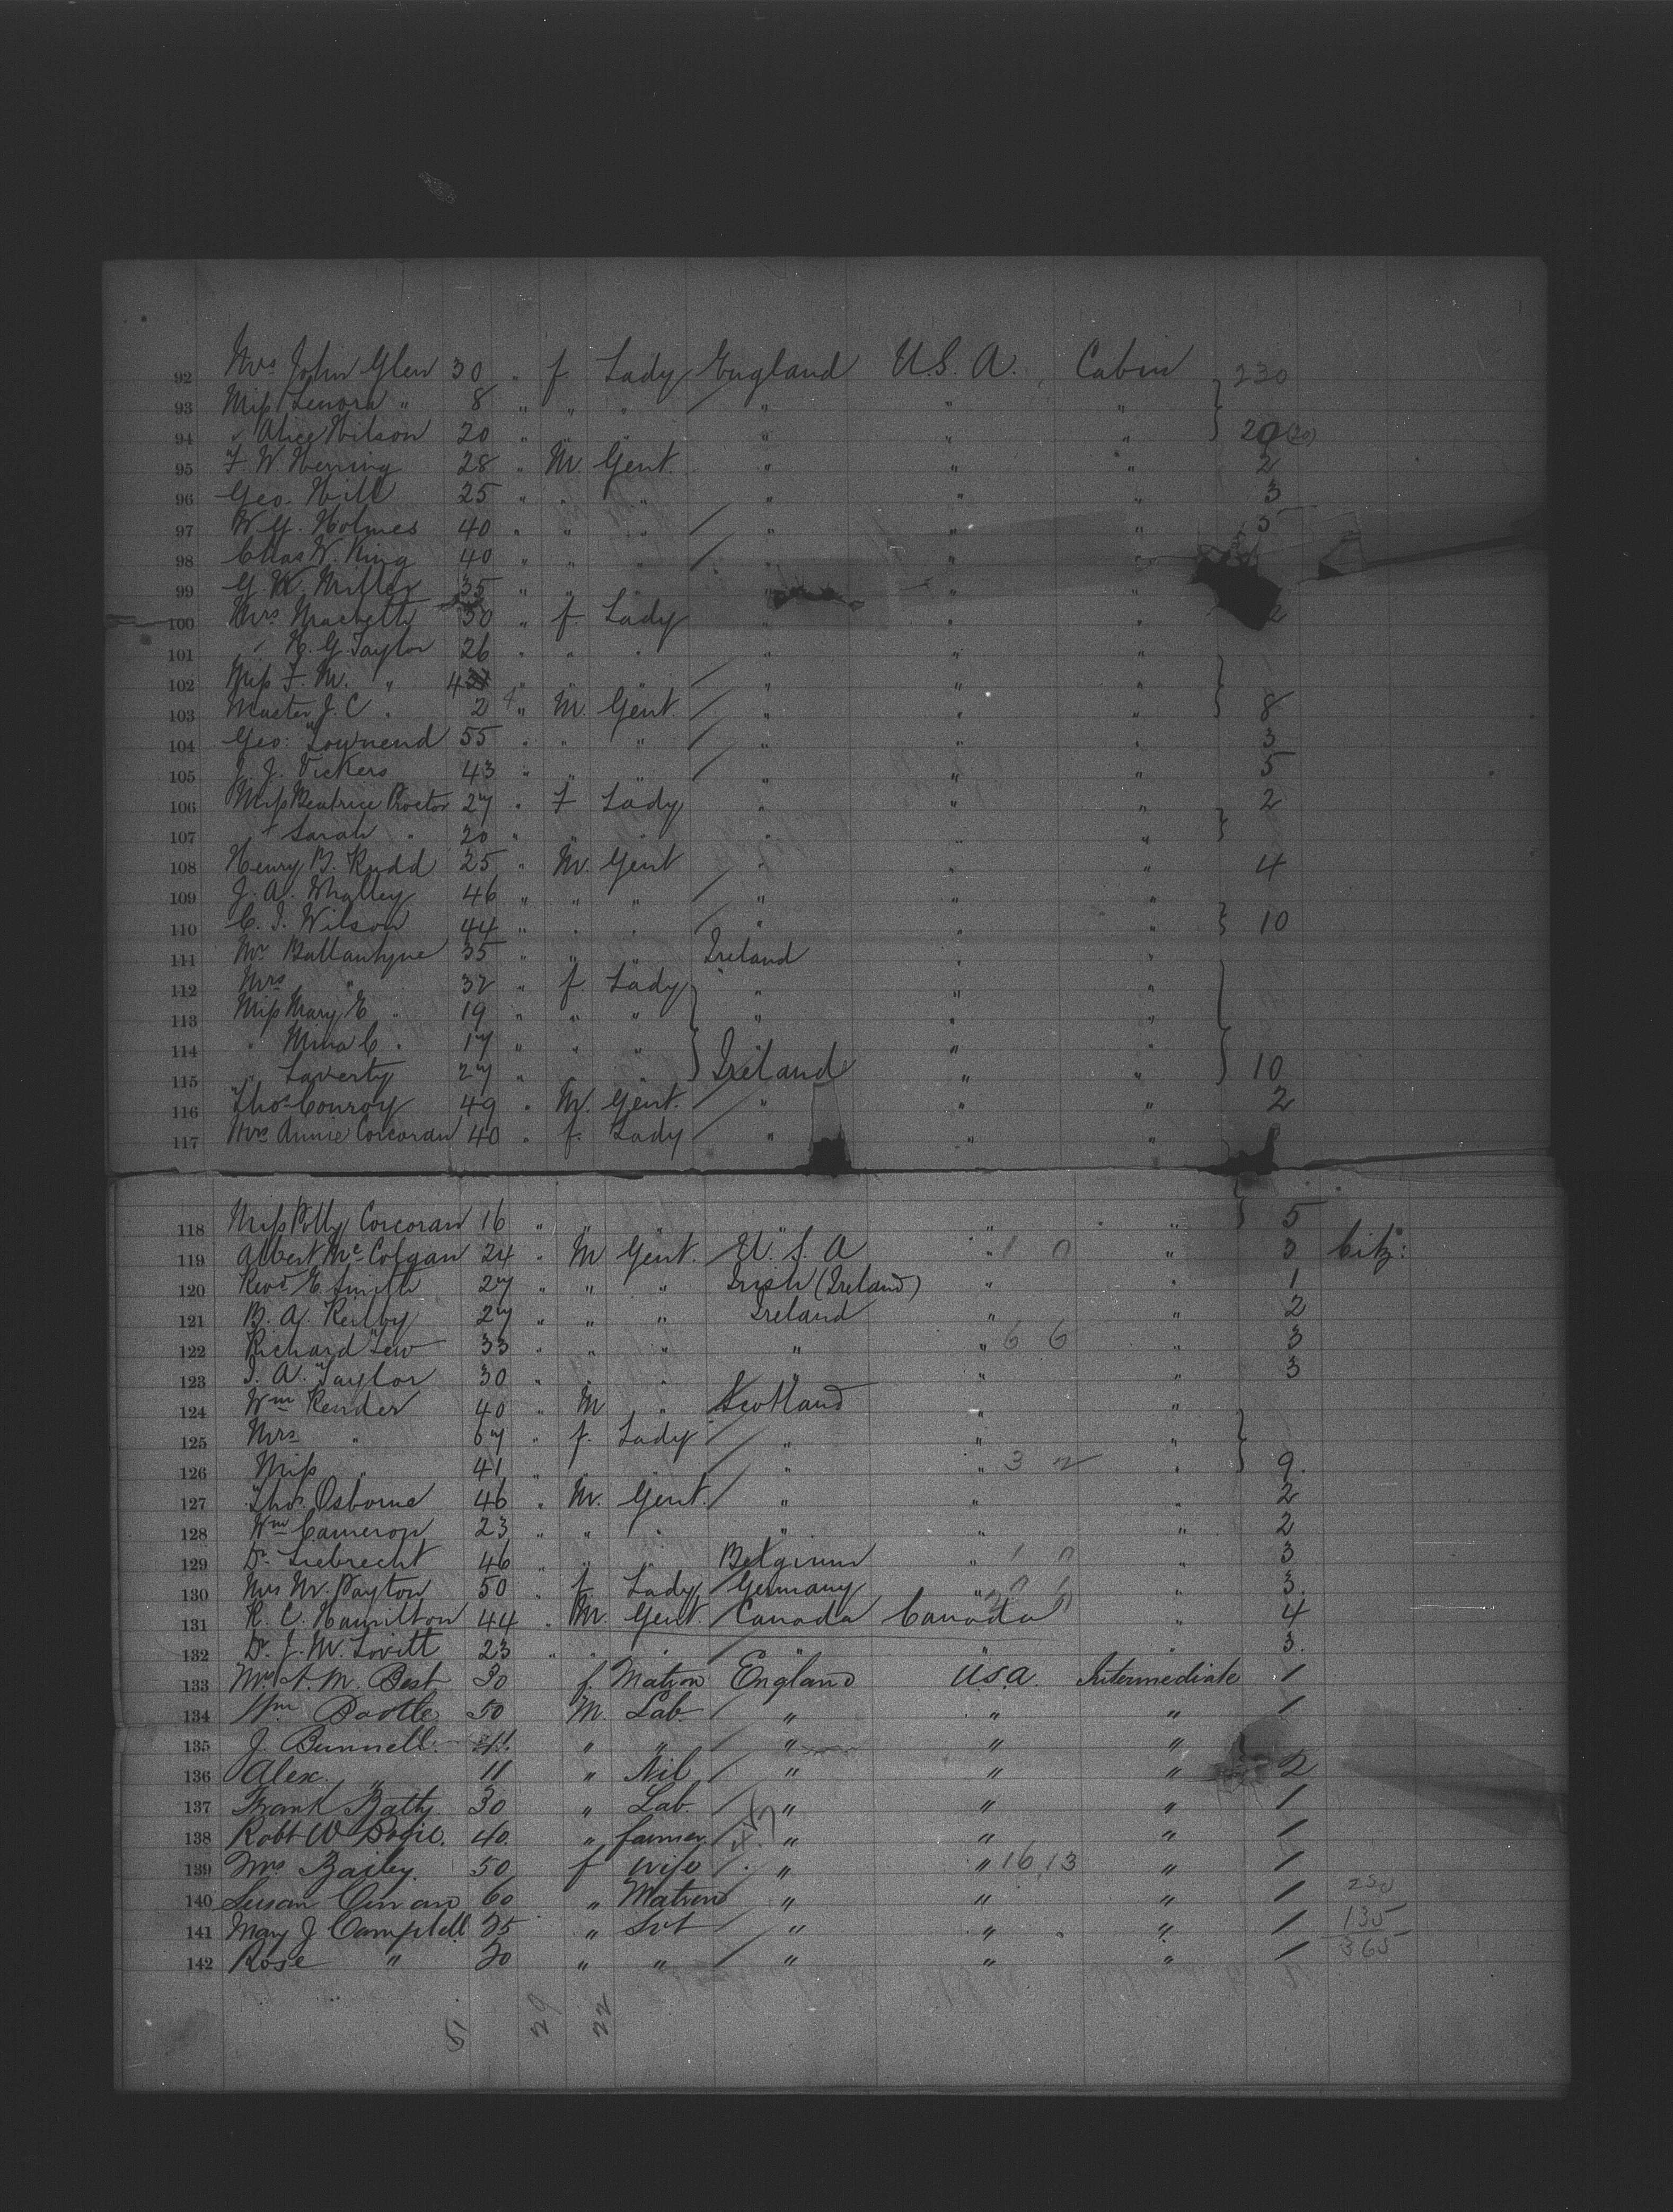 92 Mrs John Glen 30 " f Lady England U.S.A. Cabin 230
93 Miss Lenora " 8 " " " / " " "
94 " Alice Wilson 20 " " " " " " 20 (20)
95 F. W. Herring 28 " M Gent. " " " 2
96 Geo. Hill 25 " " " " " " 3
97 W. G. Holmes 40 " " " / " " " 5
98 Chas W. King 40 " " " / " " "
99 G. W. Miller 35 " " " " " "
100 Mrs Macbeth 30 " f. Lady " " " 2
101 " H. G. Taylor 26 " " " " " "
102 Miss F. M. " 4 " " " / " " "
103 Master J. C. " 2 " M. Gent. / " " " 8
104 Geo: Townend 55 " " " / " " " 3
105 J. J. Vickers 43 " " " / " " " 5
106 Miss Beatrice Proctor 27 " F Lady " " " 2
107 " Sarah " 20 " " " " " "
108 Henry B. Rudd 25 " M. Gent " " " 4
109 J. A. Whalley 46 " " " / " " "
110 C. J. Wilson 44 " " " / " " " 10
111 Mr Ballantyne 35 " " " Ireland " "
112 Mrs " 32 " f. Lady " " "
113 Miss Mary E " 19 " " " " " "
114 " Mina C. " 17 " " " " "
115 " Laverty 27 " " " Ireland " " 10
116 Thos Conroy 49 " M. Gent. / " " " 2
117 Mrs Annie Corcoran 40 " f. Lady / " " "
118 Miss Polly Corcoran 16 " " " " " 5
119 Albert McColgan 24 " M Gent. / U.S.A " 1 0 " 3 Citz:
120 Revd E. Smith 27 " " " Irish (Ireland) " " 1
121 B. A. Reilby 27 " " " Ireland " " 2
122 Richard Lew 33 " " " " " 6 6 " 3
123 J. A. Taylor 30 " " " " " " 3
124 Wm Render 40 " M " Scotland " "
125 Mrs " 67 " f. Lady / " " "
126 Miss " 41 " " " / " " 3 2 " 9.
127 Thos. Osborne 46 " M. Gent. / " " " 2
128 Wm Cameron 23 " " " " " " 2
129 Dr. Liebrecht 46 " " " Belgium " 1 0 " 3
130 Mrs M. Payton 50 " f. Lady / Germany " " 3.
131 R. C. Hamilton 44 " M. Gent. / Canada Canada " 4
132 Dr. J. M. Lovitt 23 " " " / " " " 3.
133 Mrs A. M. Best 30 f. Matron England U.S.A. Intermediate 1
134 Wm Bootle 50 M. Lab. / " " " 1
135 J. Bunnell. 41. " " / " " "
136 Alex. " 11 " Nil / " " " 2
137 Frank Batty. 30 " Lab. / " " " 1
138 Robt W Bogie. 40. " farmer / " " " 1
139 Mrs Bailey. 50 f wife / " " 16 13 " 1
140 Susan 60 " Matron " " " 1 230
141 Mary J Campbell 25 " Svt / " " " 1 135
142 Rose " 20 " " / " " " 1 365
51 29 22